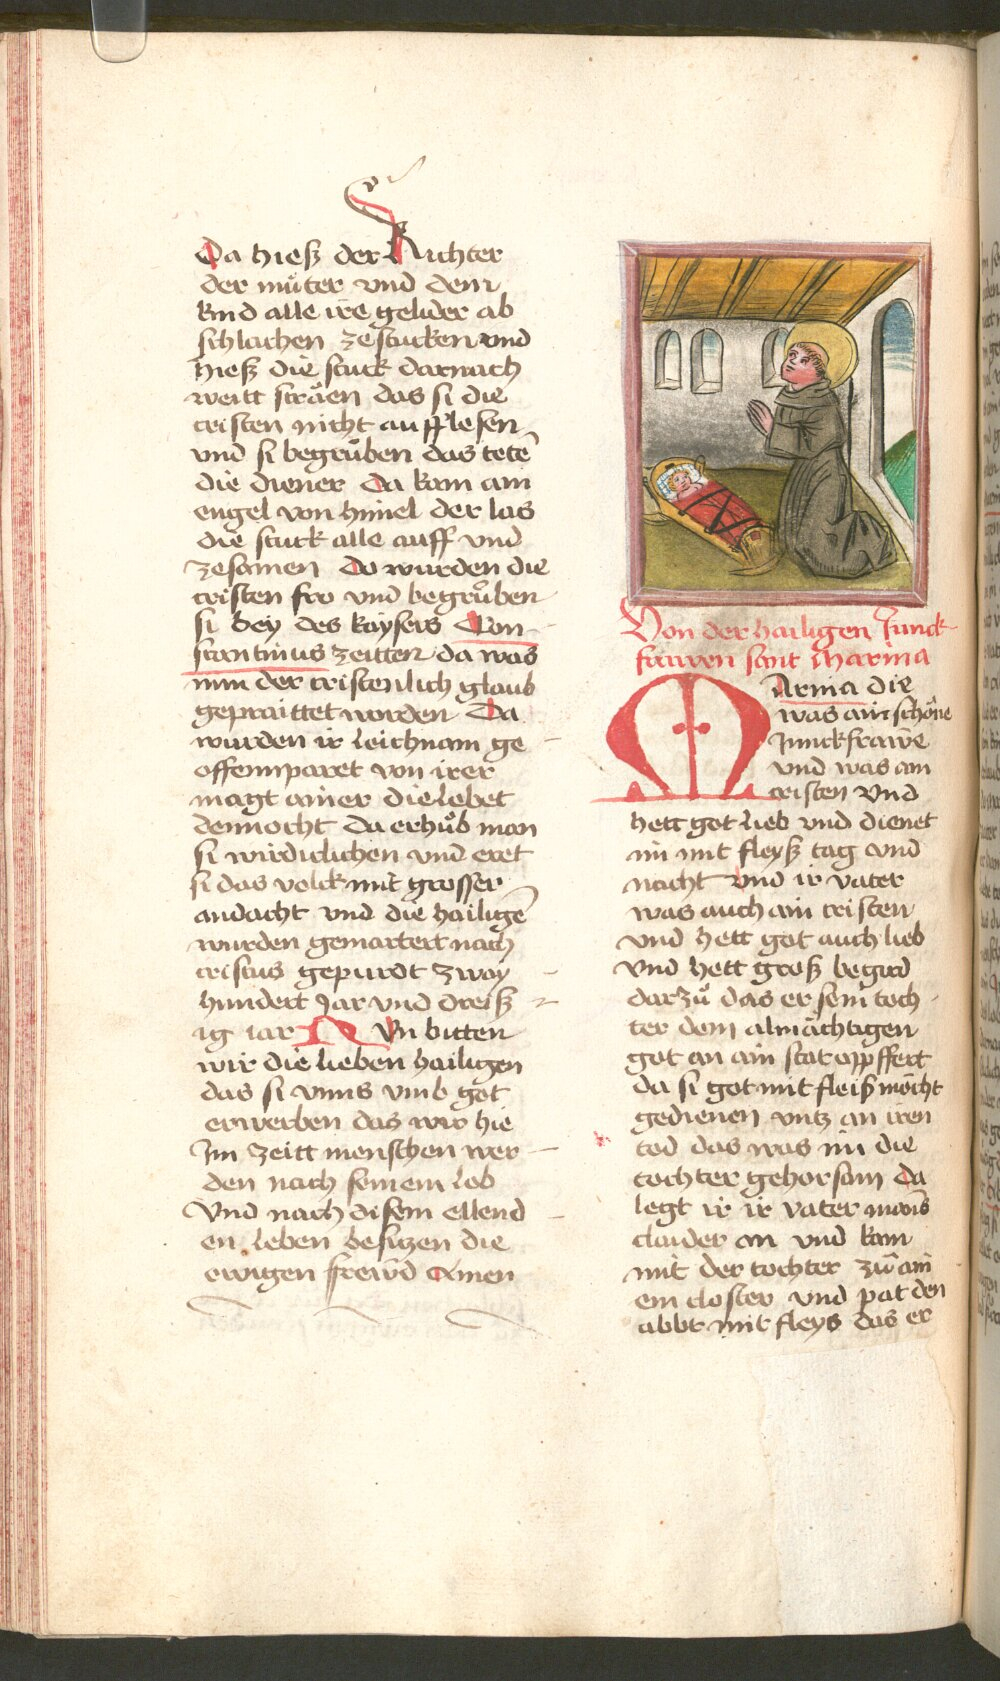 Da hiesz der Richter
der muͦter vnd dem
kind alle ire gelider ab
schlachen zestucken vnd
hiesz die stuck darnach
weitt sträen das si die
cristen nicht aufflesen
vnd si begruͦben das tetē
die diener Da kam ain
engel von himel der las
die stuck alle auff vnd
zesamen Do wurden die
cristen fro vnd begruͦben
si bey des kaysers Con
stantinus zeitten da was
nun der cristenlich glaub
gepraittet worden Da
wurden ir leichnam ge
offennparet von irer
magt ainer die lebet
dennocht Da erhuͦb man
si wirdiclichen vnd eret
si das volck mit grosser
andacht vnd die hailigē
wurden gemartert nach
cristus gepurdt zway
hundert Jar vnd dreisz
ig iar NVn bitten
wir die lieben hailigen
das si vnns vmb got
erwerben das wir hie
Im zeitt menschen wer
den nach seinem lob
Vnd nach disem ellend
en leben besitzen die
ewigen frewd Amen
Von der hailigen Junck
frawen sant Marina
MArina die
was ain schöne
Junckfrawe
vnd was ain
cristen vnd
hett got lieb vnd dienet
im mit fleysz tag vnd
nacht vnd ir vater
was auch ain cristen
vnd hett got auch lieb
Vnd hett grosz begird
darzuͦ das er sein toch
ter dem almächtigen
got an ain stat opffert
da si got mit fleisz möcht
gedienen vntz an iren
tod das was im die
tochter gehorsam Da
legt ir ir vater mans
claider an vnd kam
mit der tochter zuͦ ain
em closter vnd pat den
abbt mit fleys das er